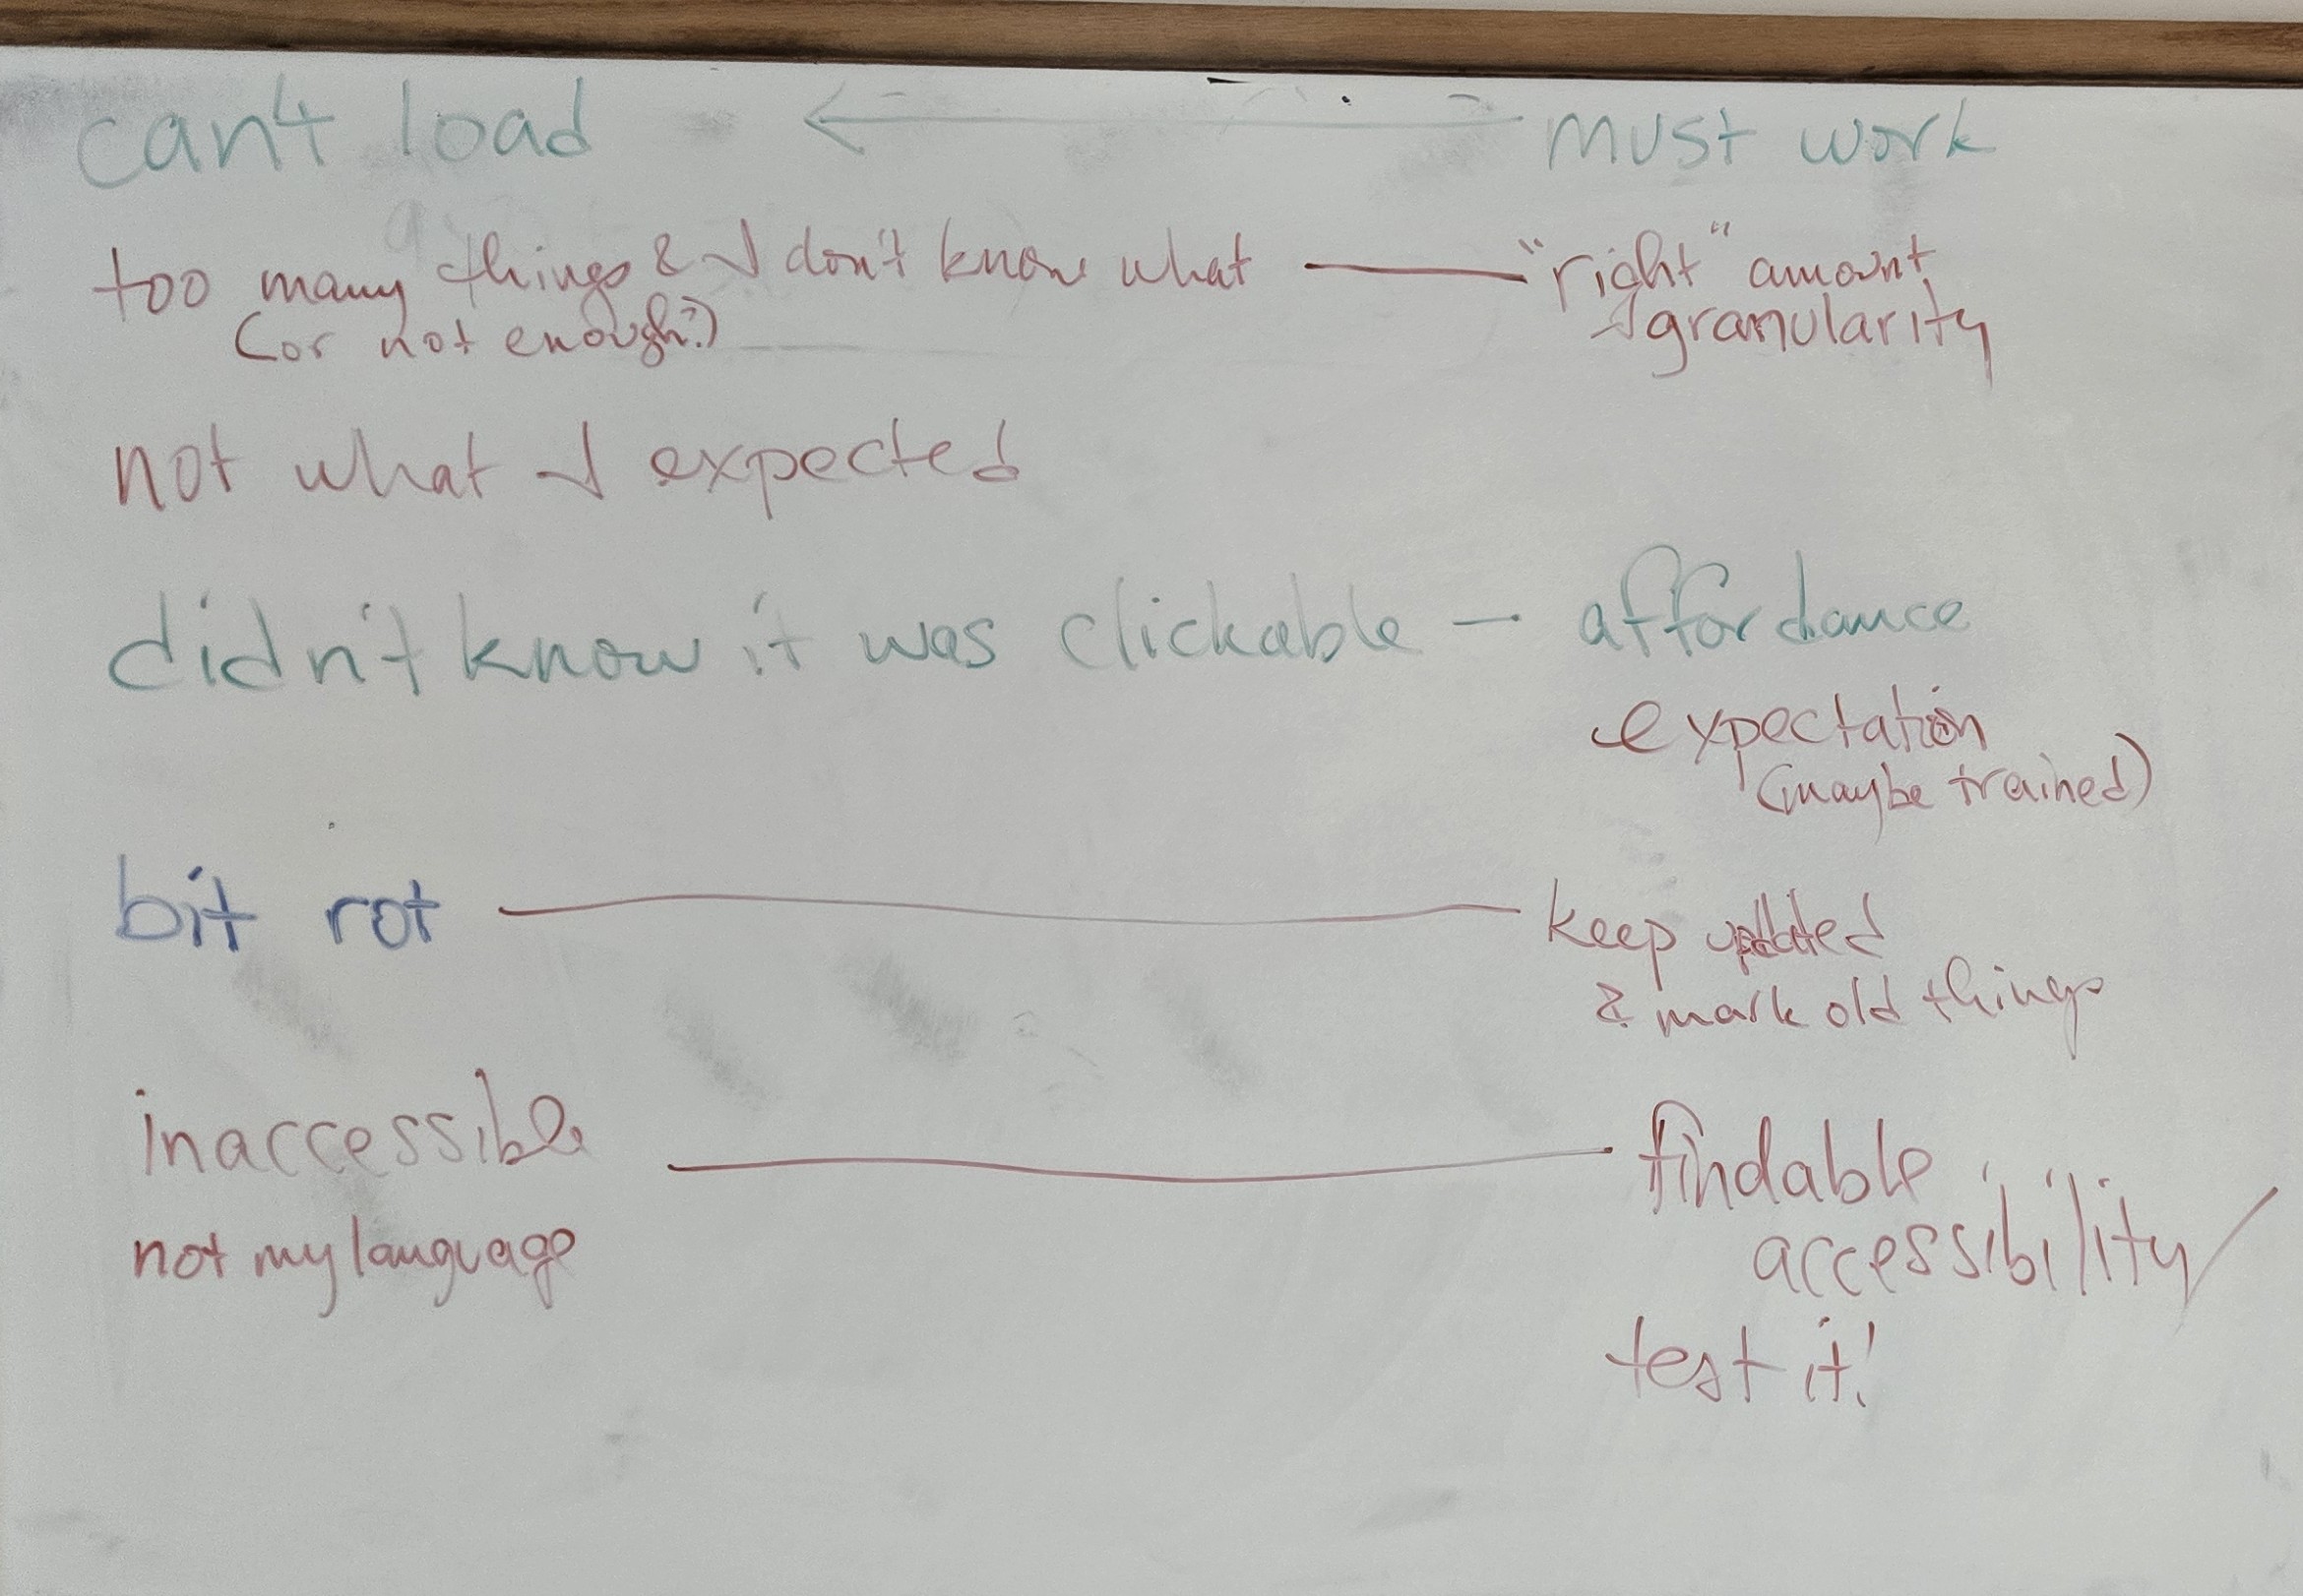 can't load ← must work
too many things & I don't know what — "right" amount
(or not enough?) & granularity
not what I expected
didn't know it was clickable — affordance
expectation
(maybe trained)
bit rot — keep updated
& mark old things
inaccessible — findable
accessibility
not my language
test it!